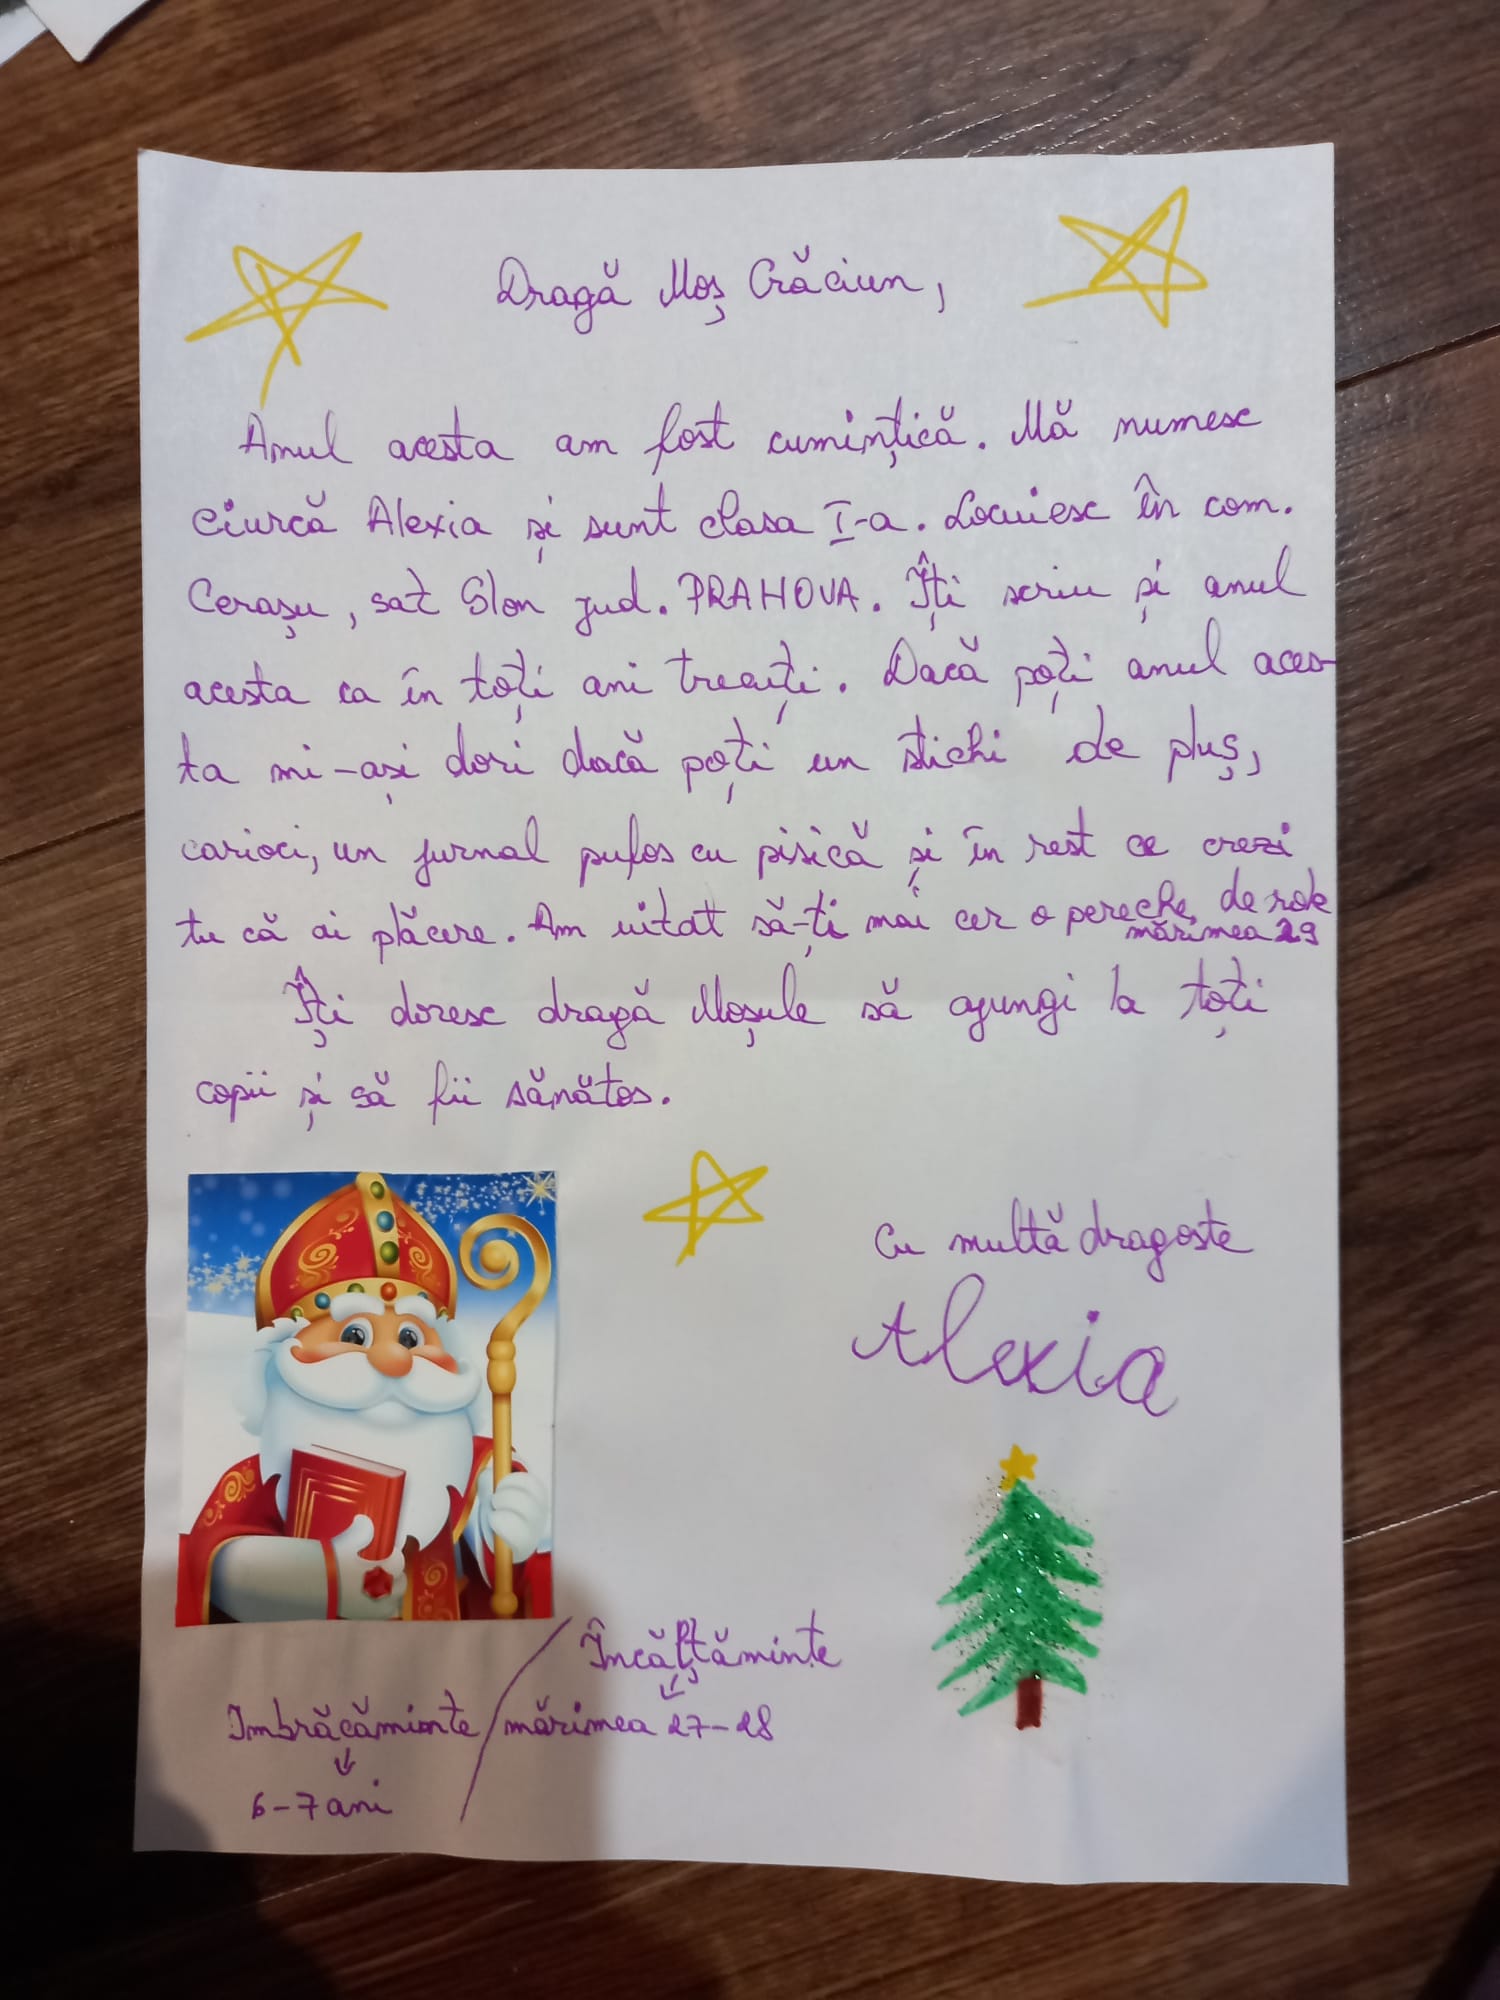 Dragă Moș Crăciun,
Anul acesta am fost cumințică. Mă numesc
Ciurcă Alexia și sunt clasa I-a. Locuiesc în com.
Cerașu, sat Slon jud. PRAHOVA. Îți scriu și anul
acesta ca în toți ani trecuți. Dacă poți anul aces-
ta mi-ași dori dacă poți un stichi de pluș,
carioci, un jurnal pufos cu pisică și în rest ce crezi
tu că ai plăcere. Am uitat să-ți mai cer o pereche de role
mărimea 29
Îți doresc dragă Moșule să ajungi la toți
copii și să fii sănătos.
Cu multă dragoste
Alexia
Încălțăminte
mărimea 27-28
Imbrăcăminte
6-7 ani